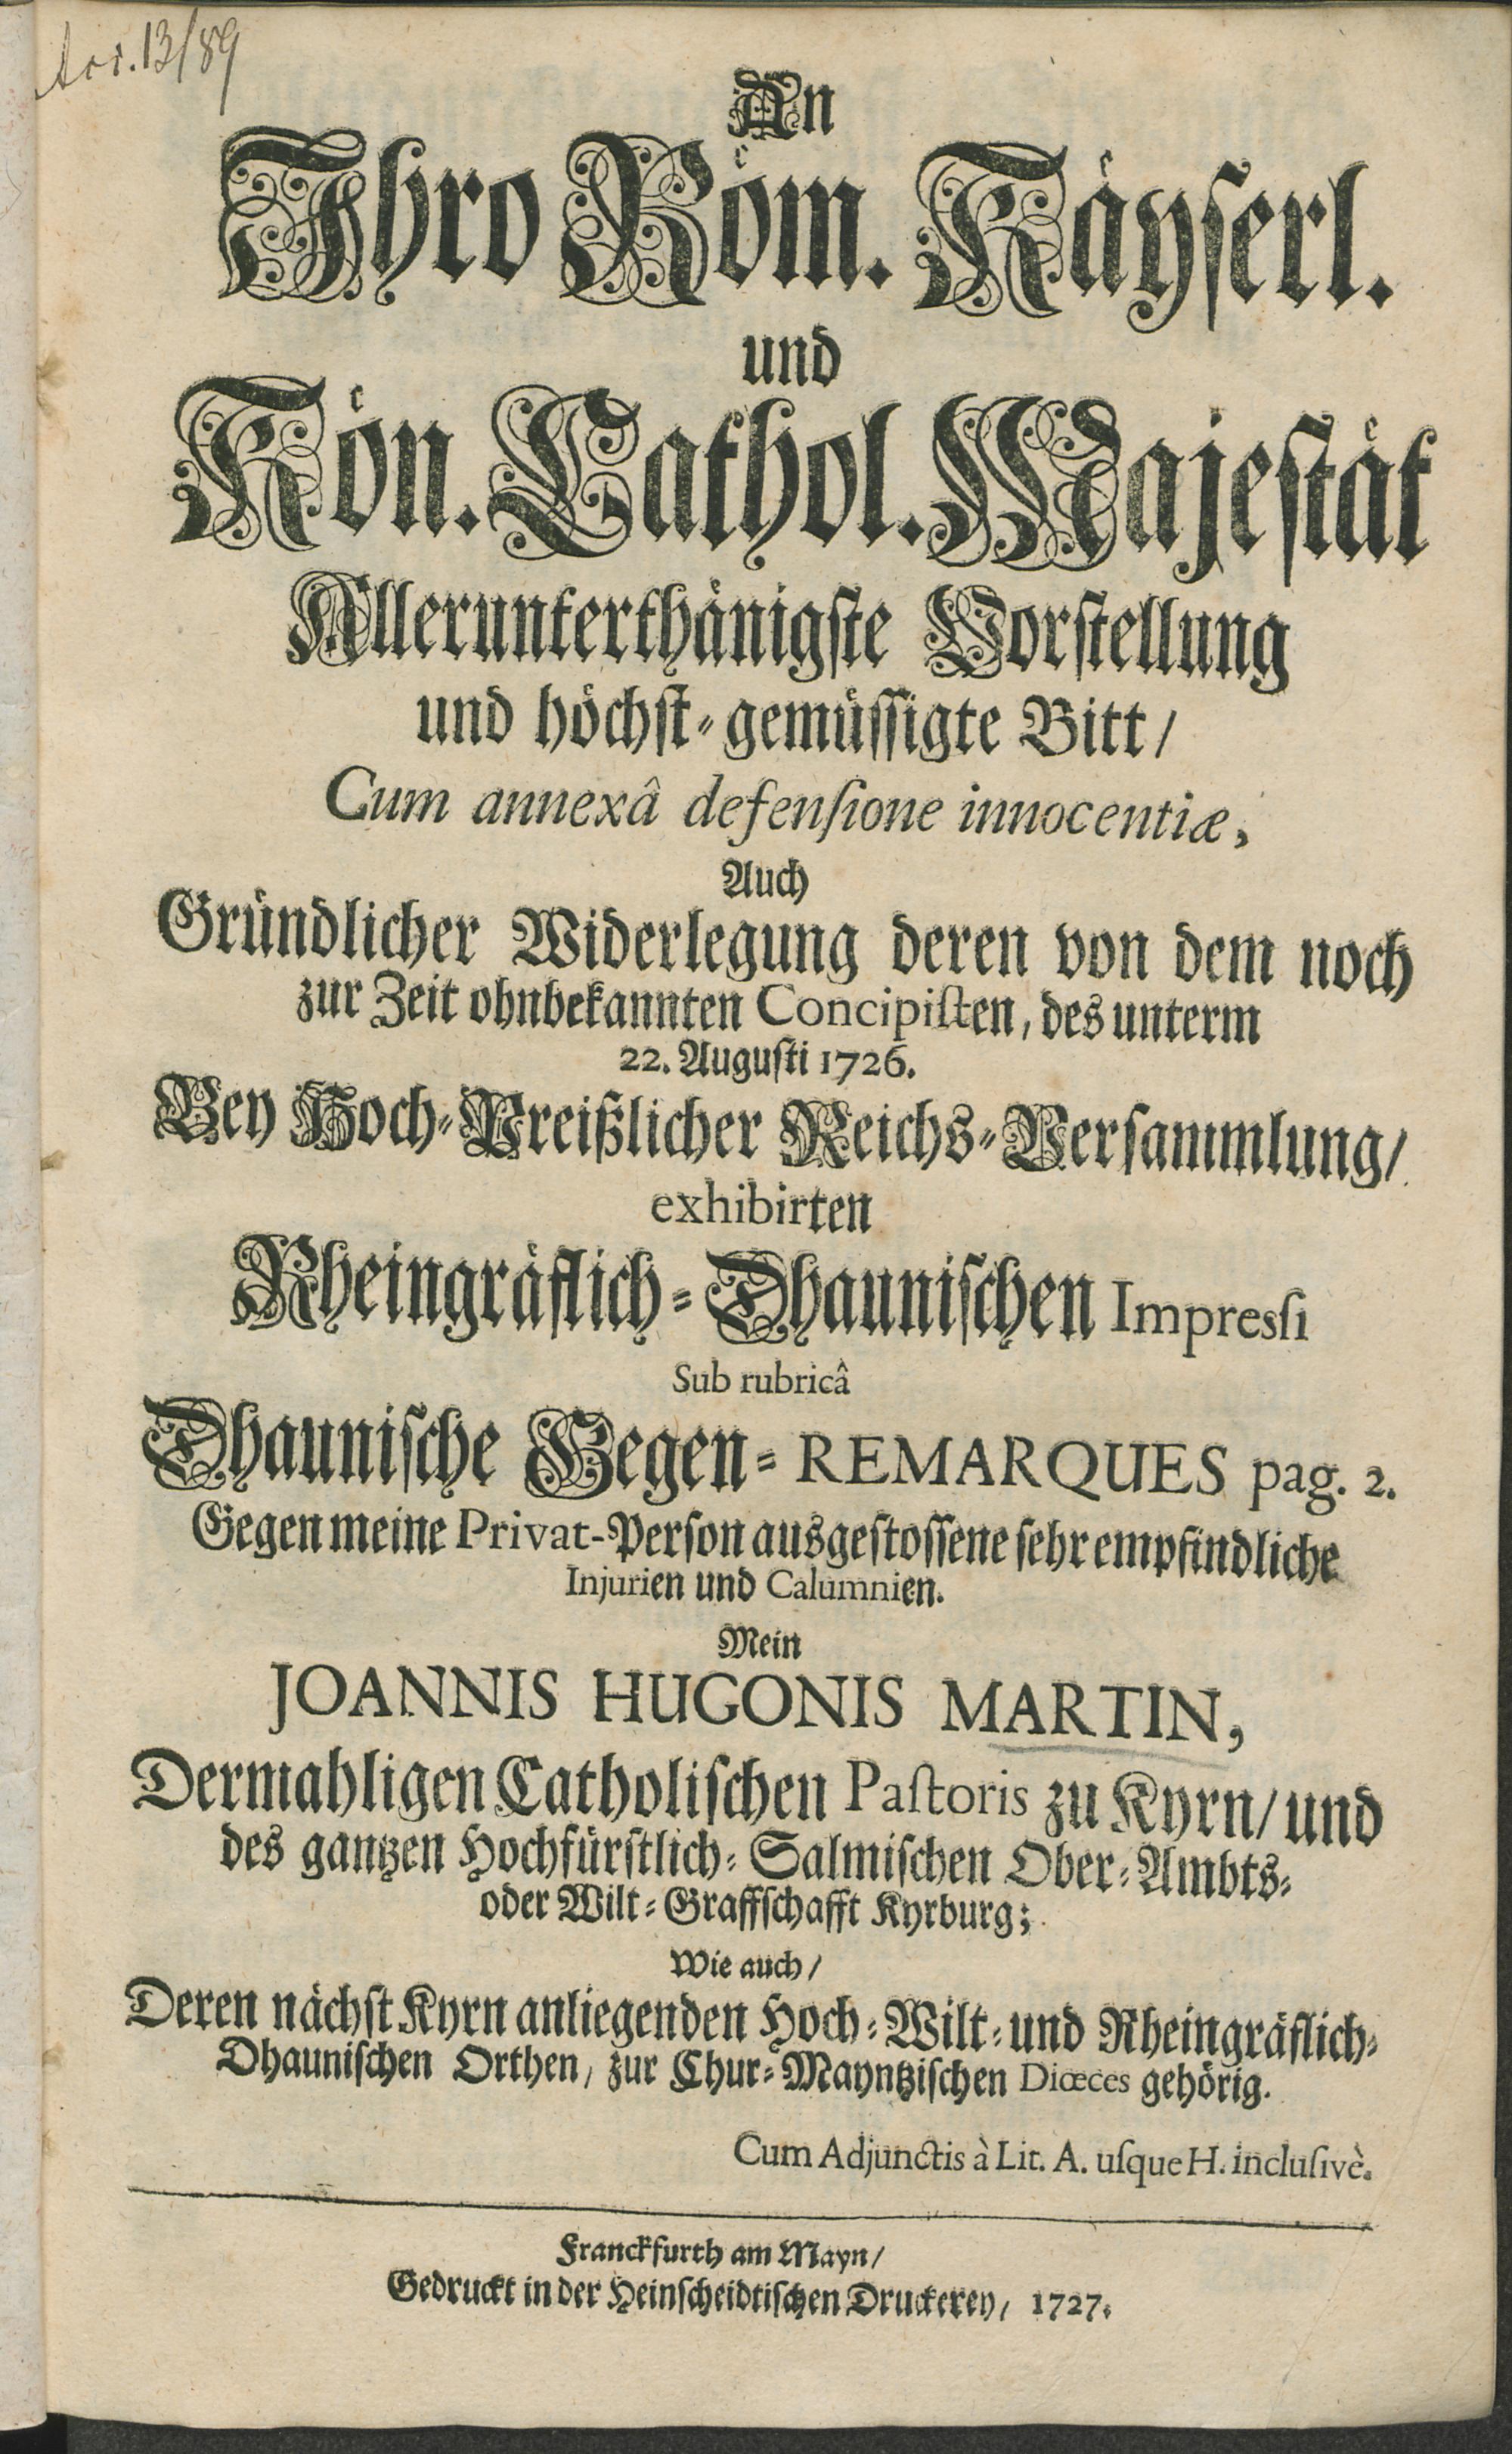 13/89
An
Ihro Röm. Käyserl.
und
Kön. Cathol. Majestät
Allerunterthänigste Vorstellung
und höchst-gemüssigte Bitt/
Cum annexâ defensione innocentiæ,
Auch
Gründlicher Widerlegung deren von dem noch
zur Zeit ohnbekannten Concipisten, des unterm
22. Augusti 1726.
Bey Hoch-Preißlicher Reichs-Versammlung/
exhibirten
Rheingräflich-Dhaunischen Impressi
Sub rubricâ
Dhaunische Gegen-REMARQUES pag. 2.
Gegen meine Privat-Person ausgestossene sehr empfindliche
Injurien und Calumnien.
Mein
JOANNIS HUGONIS MARTIN,
Dermahligen Catholischen Pastoris zu Kyrn/ und
des gantzen Hochfürstlich-Salmischen Ober-Ambts-
oder Wilt-Graffschafft Kyrburg;
Wie auch/
Deren nächst Kyrn anliegenden Hoch-Wilt-und Rheingräflich-
Dhaunischen Orthen, zur Chur-Mayntzischen Diœces gehörig.
Cum Adjunctis à Lit. A. usque H. inclusivè.
Franckfurth am Mayn/
Gedruckt in der Heinscheidtischen Druckerey, 1727.